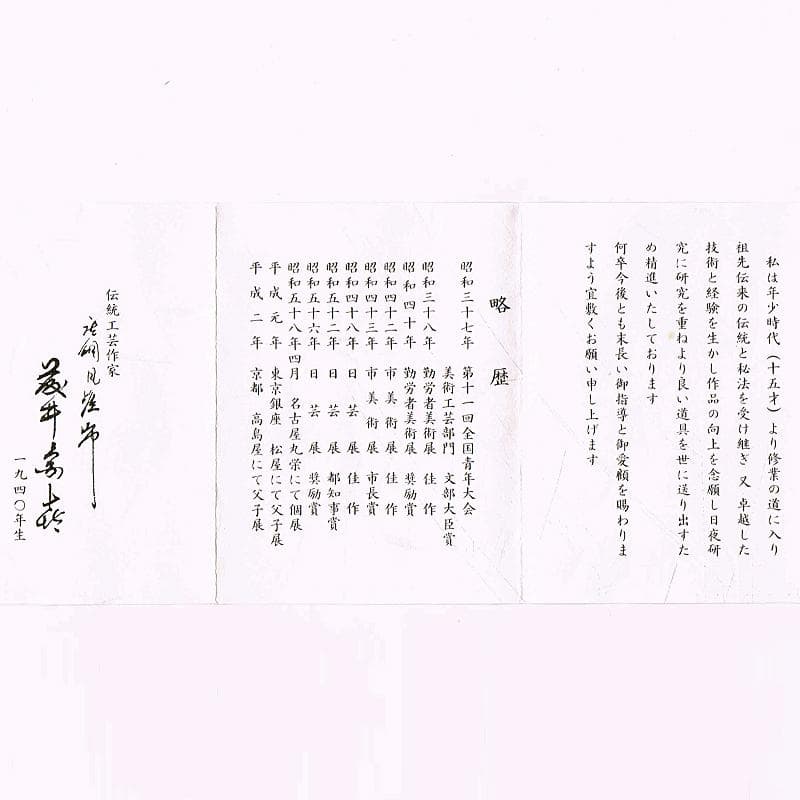 私は年少時代(十五才)より修業の道に入り
祖先伝来の伝統と秘法を受け継ぎ 又 卓越した
技術と経験を生かし作品の向上を念願し日夜研
究に研究を重ねより良い道具を世に送り出すた
め精進いたしております
何卒今後とも末長い御指導と御愛顧を賜わりま
すよう宜敷くお願い申し上げます
略歴
昭和三十七年 第十一回全国青年大会
美術工芸部門 文部大臣賞
昭和三十八年 勤労者美術展 佳作
昭和四十年 勤労者美術展 奨励賞
昭和四十二年 市美術展 佳作
昭和四十三年 市美術展 市長賞
昭和四十八年 日芸展 佳作
昭和五十二年 日芸展 都知事賞
昭和五十六年 日芸展 奨励賞
昭和五十八年四月 名古屋丸栄にて個展
平成元年 東京銀座 松屋にて父子展
平成二年 京都 高島屋にて父子展
伝統工芸作家
藤井
一九四〇年生